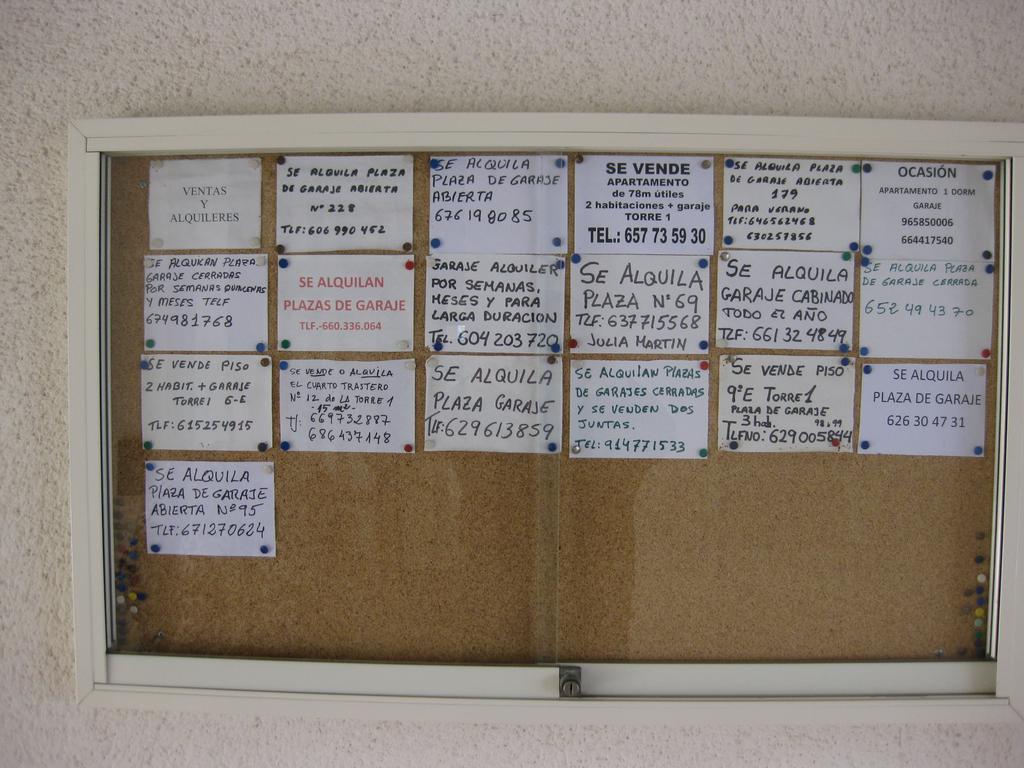 VENTAS
Y
ALQUILERES
SE ALQUILA PLAZA
DE GARAJE ABIERTA
Nº 228
TLF: 606 990 452
SE ALQUILA
PLAZA DE GARAJE
ABIERTA
676 19 80 85
SE VENDE
APARTAMENTO
de 78m útiles
2 habitaciones + garaje
TORRE 1
TEL.: 657 73 59 30
SE ALQUILA PLAZA
DE GARAJE ABIERTA
179
PARA VERANO
TLF: 646562468
630257856
OCASIÓN
APARTAMENTO 1 DORM
GARAJE
965850006
664417540
SE ALQUKAN PLAZA
GARAJE CERRADAS
POR SEMANAS QUINCENAS
Y MESES TELF
674981768
SE ALQUILAN
PLAZAS DE GARAJE
TLF.-660.336.064
GARAJE ALQUILER
POR SEMANAS,
MESES Y PARA
LARGA DURACION
TEL. 604 203 720
SE ALQUILA
PLAZA Nº 69
TLF: 637715568
JULIA MARTIN
SE ALQUILA
GARAJE CABINADO
TODO EL AÑO
TLF: 661 32 48 49
SE ALQUILA PLAZA
DE GARAJE CERRADA
652 49 43 70
SE VENDE PISO
2 HABIT. + GARAJE
TORRE 1 6-E
TLF: 615254915
SE VENDE O ALQUILA
EL CUARTO TRASTERO
Nº 12 de LA TORRE 1
-15 m²-
Tf: 669732887
686437148
SE ALQUILA
PLAZA GARAJE
TLF: 629613859
SE ALQUILAN PLAZAS
DE GARAJES CERRADAS
Y SE VENDEN DOS
JUNTAS.
TEL: 914771533
SE VENDE PISO
9ºE TORRE 1
PLAZA DE GARAJE
3 hab. 98.99
TLFNO: 629005844
SE ALQUILA
PLAZA DE GARAJE
626 30 47 31
SE ALQUILA
PLAZA DE GARAJE
ABIERTA Nº 95
TLF: 671270624